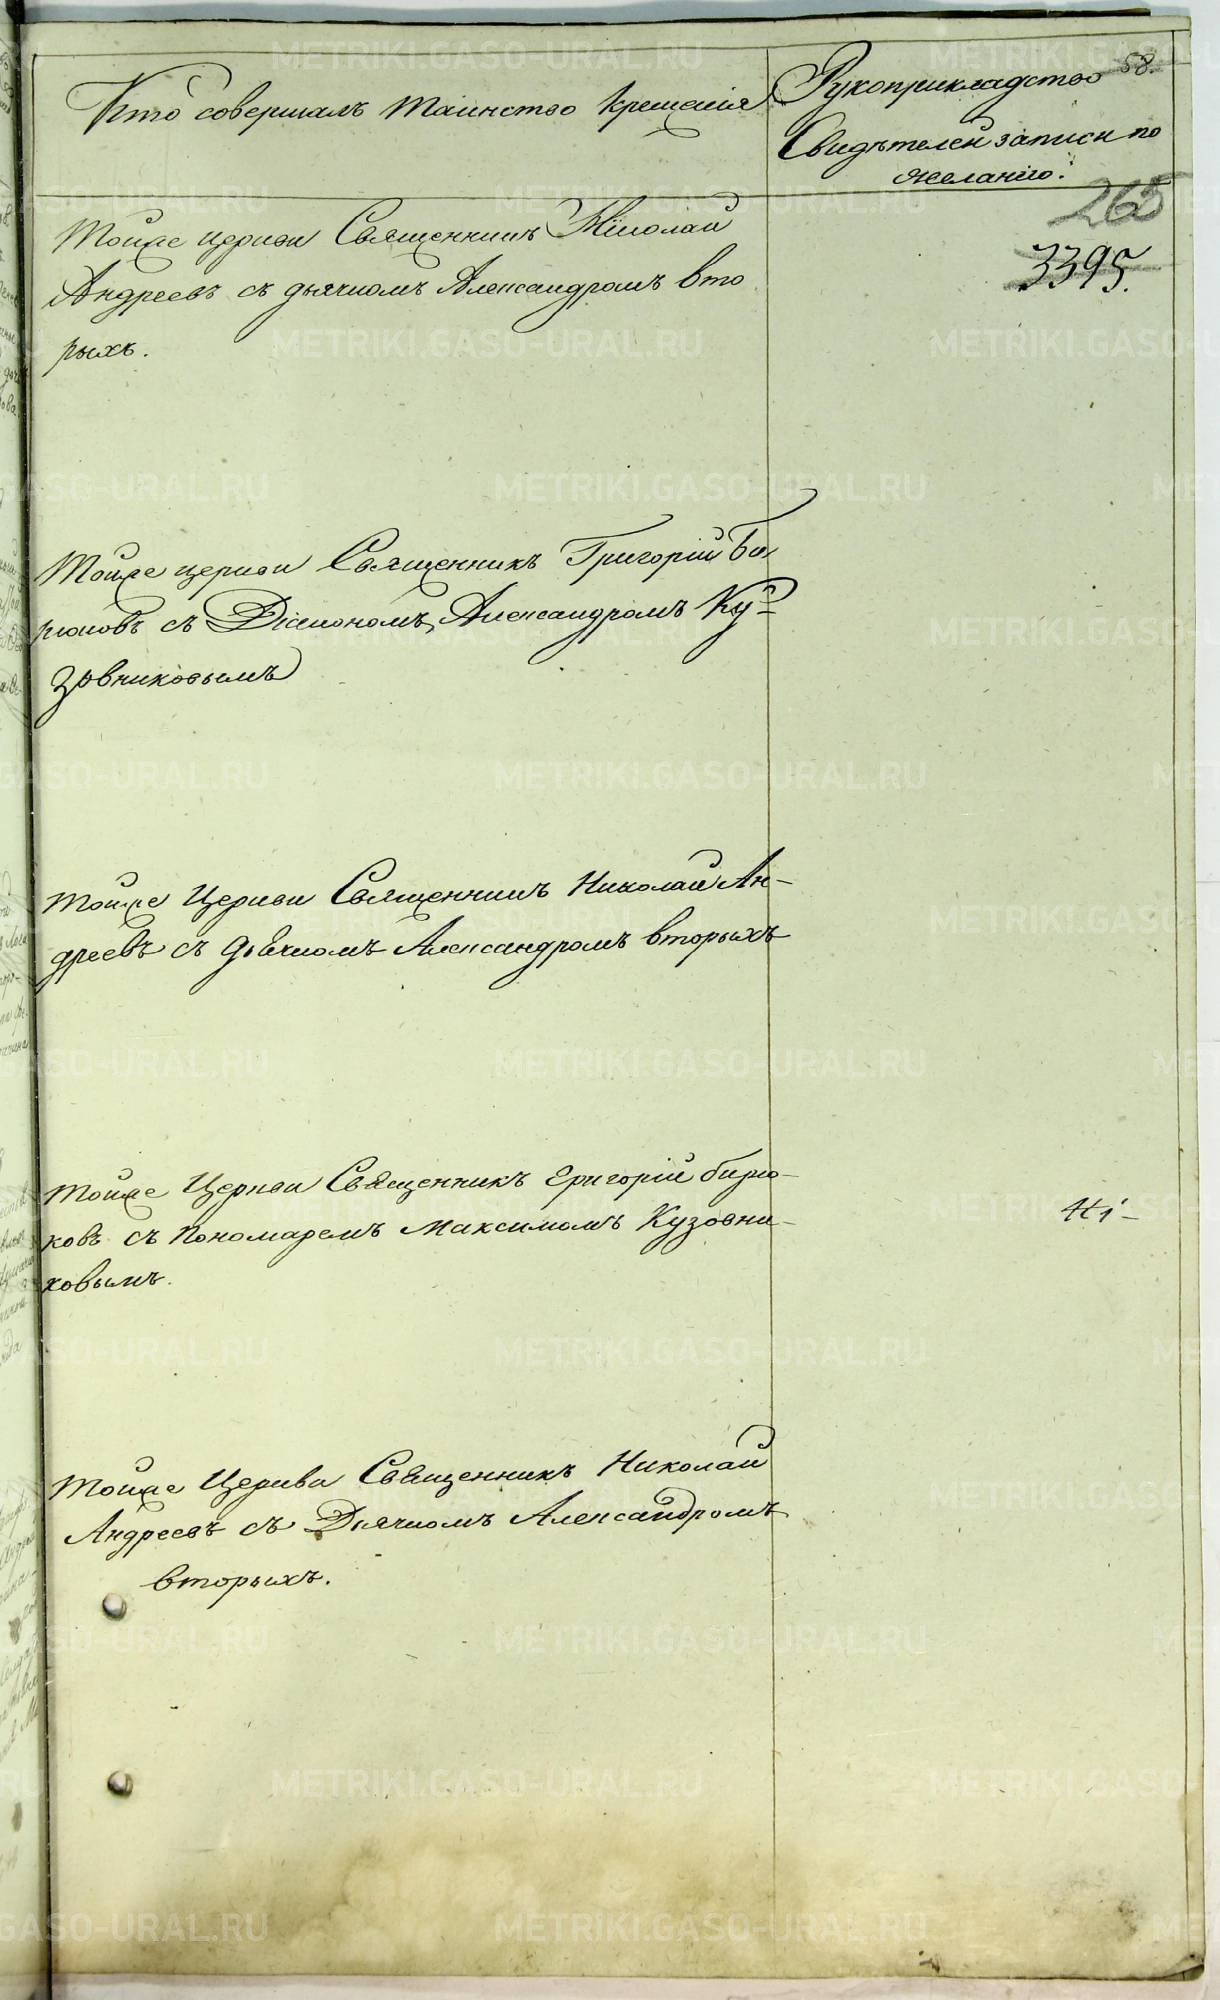 Кто совершалъ таинство крещенія
Рукоприкладство
58.
Свидѣтелей записи по
желанію.
265
3395.
Тойже церкви Священникъ Николай
Андреевъ съ дьячкомъ Александромъ вто
рыхъ.
Тойже церкви Священникъ Григорій Би
рюковъ съ Діакономъ Александромъ Ку-
зовниковымъ
Тойже Церкви Священникъ Николай Ан-
древъ съ дьячкомъ Александромъ вторыхъ
Тойже Церкви Священникъ Григорій бирю-
ковъ съ Пономаремъ Максимомъ Кузовни-
ковымъ.
Тойже Церкви Священникъ Николай
Андреевъ съ Дьячкомъ Александромъ
вторыхъ.
METRIKI.GASO-URAL.RU